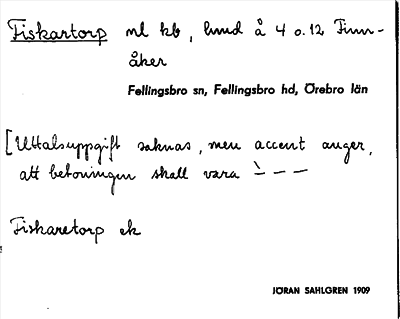 Fiskartorp ml kb, hmd å 4 o. 12 Finn-
åker
Fellingsbro sn, Fellingsbro hd, Örebro län
[Uttalsuppgift saknas, men accent anger,
att betoningen skall vara `– – –
Fiskaretorp ek
JÖRAN SAHLGREN 1909